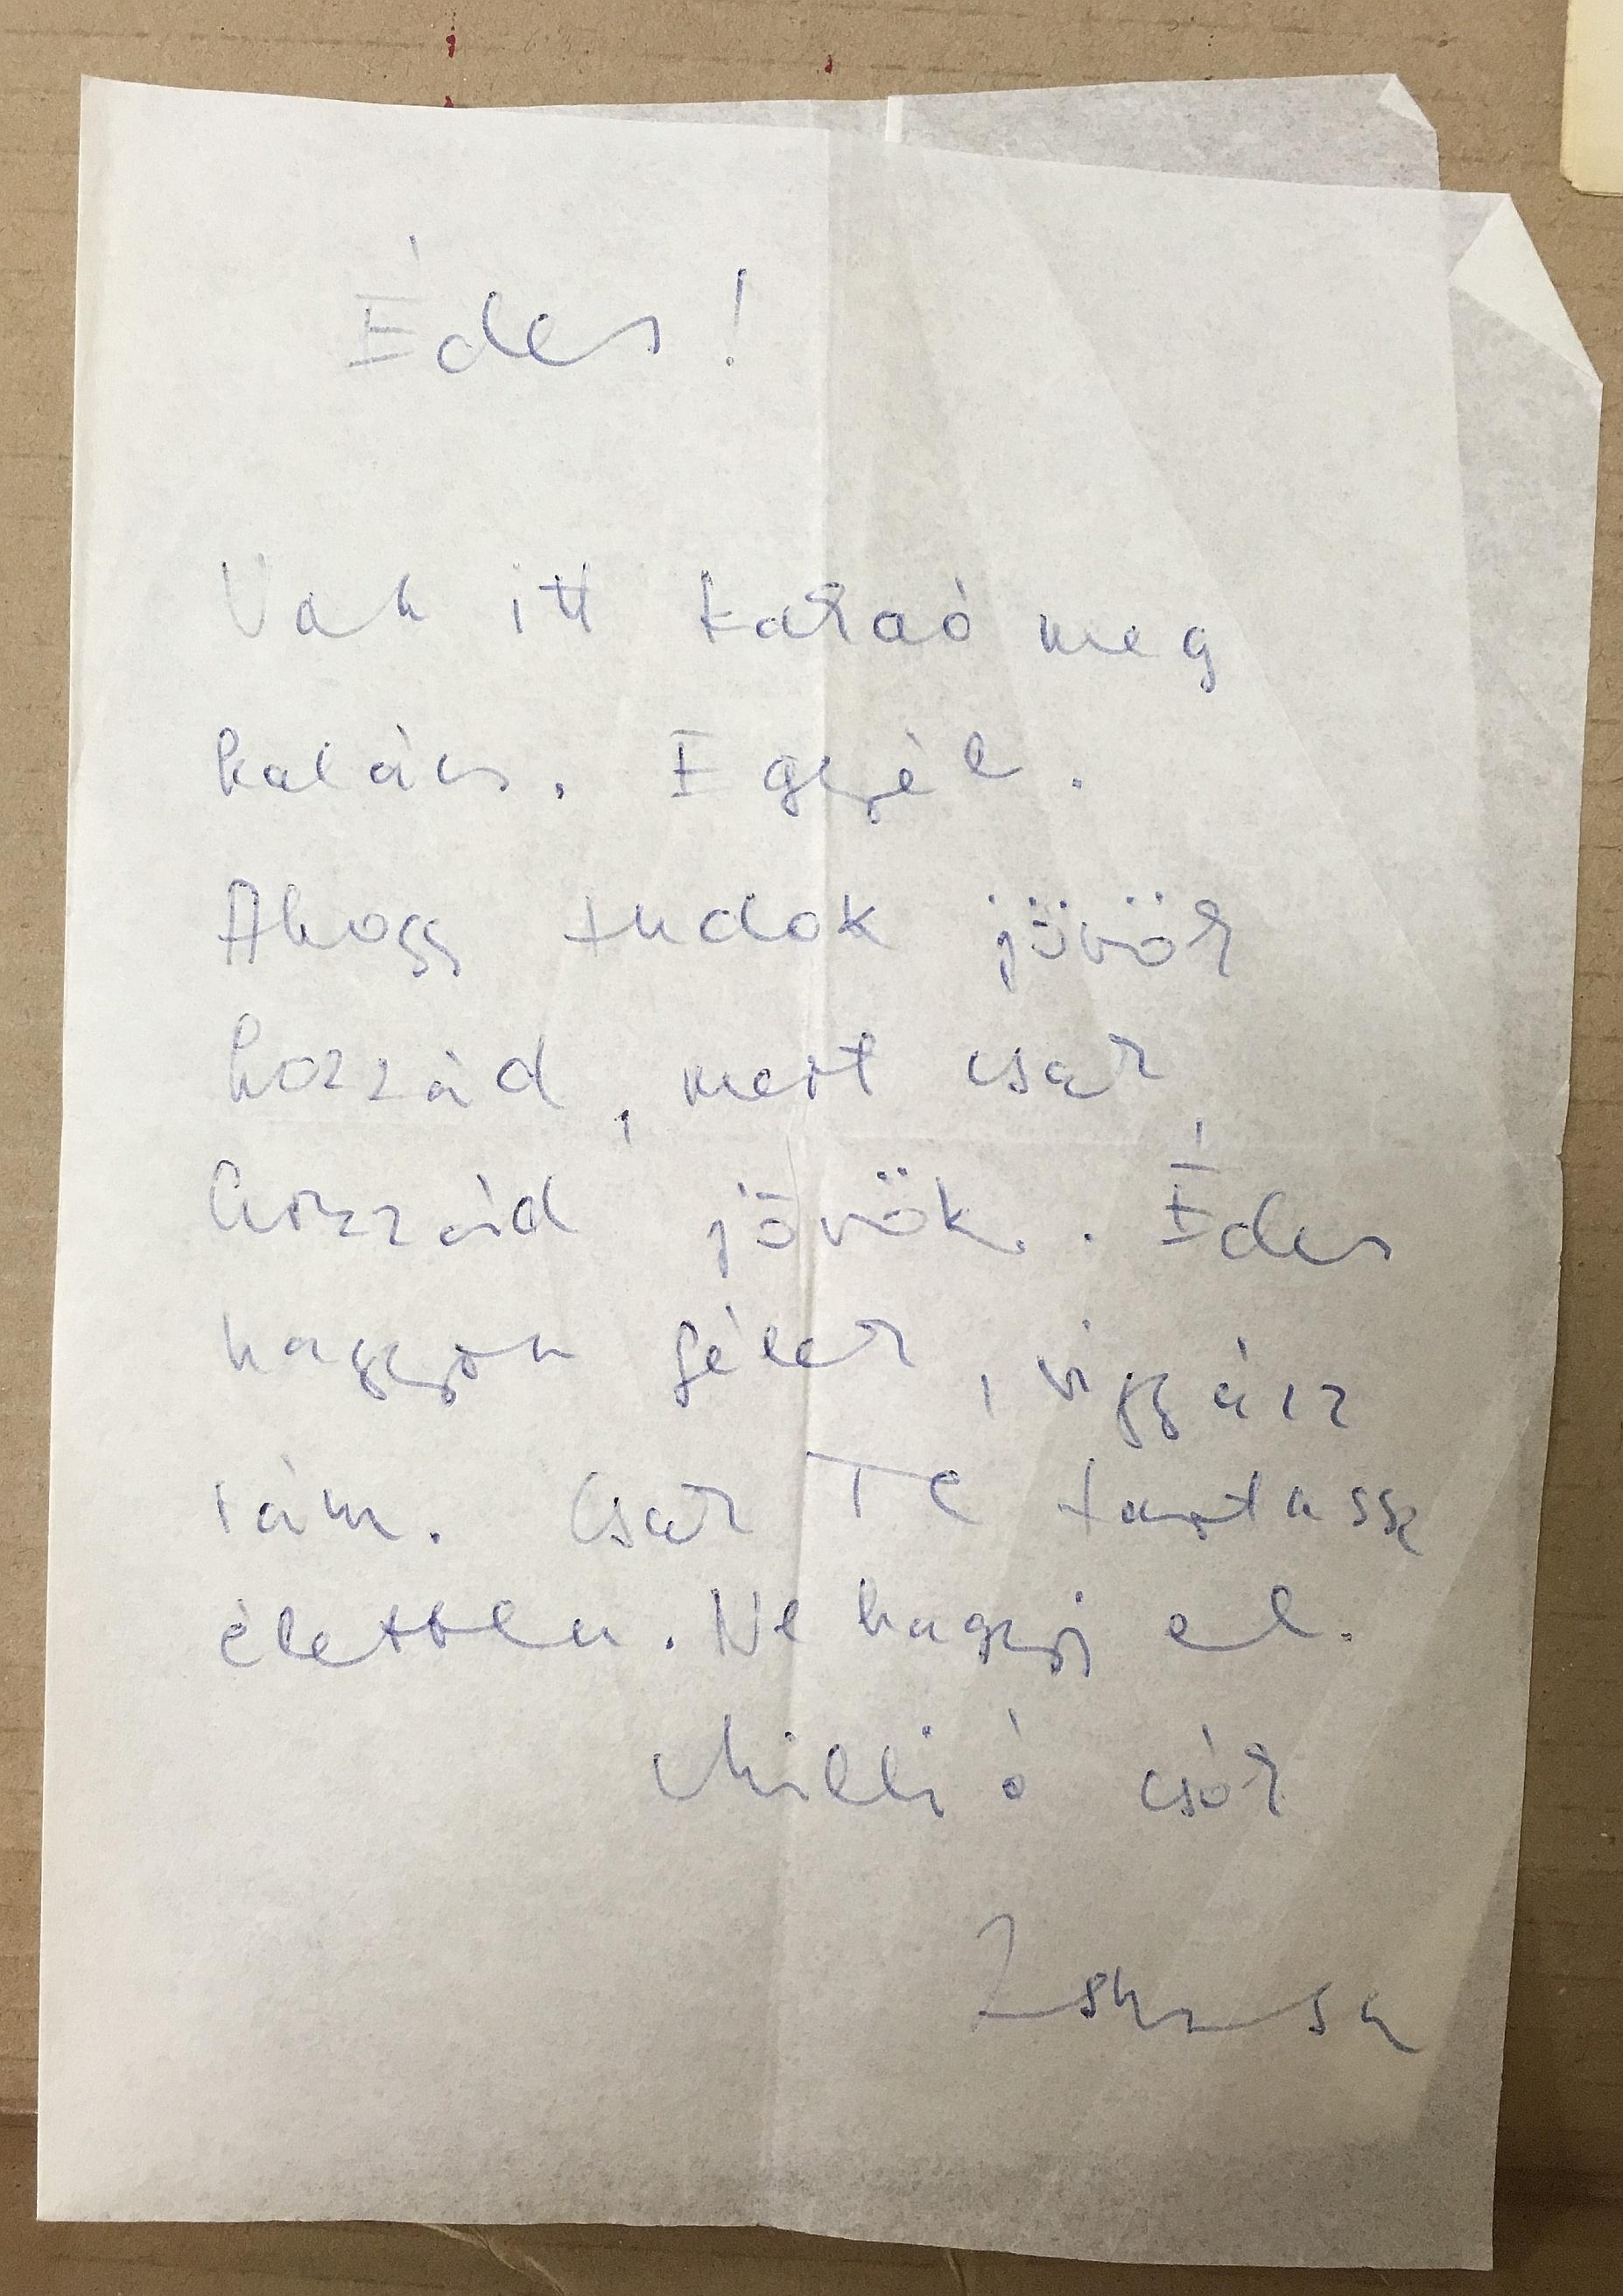 Édes!
Van itt kakaó meg
kalács. Egyél.
Ahogy tudok jövök
hozzád, mert csak
hozzád jövök. Édes
nagyon félek, vigyázz
rám. Csak Te tartassz
életben. Ne hagyj el.
Millió csók